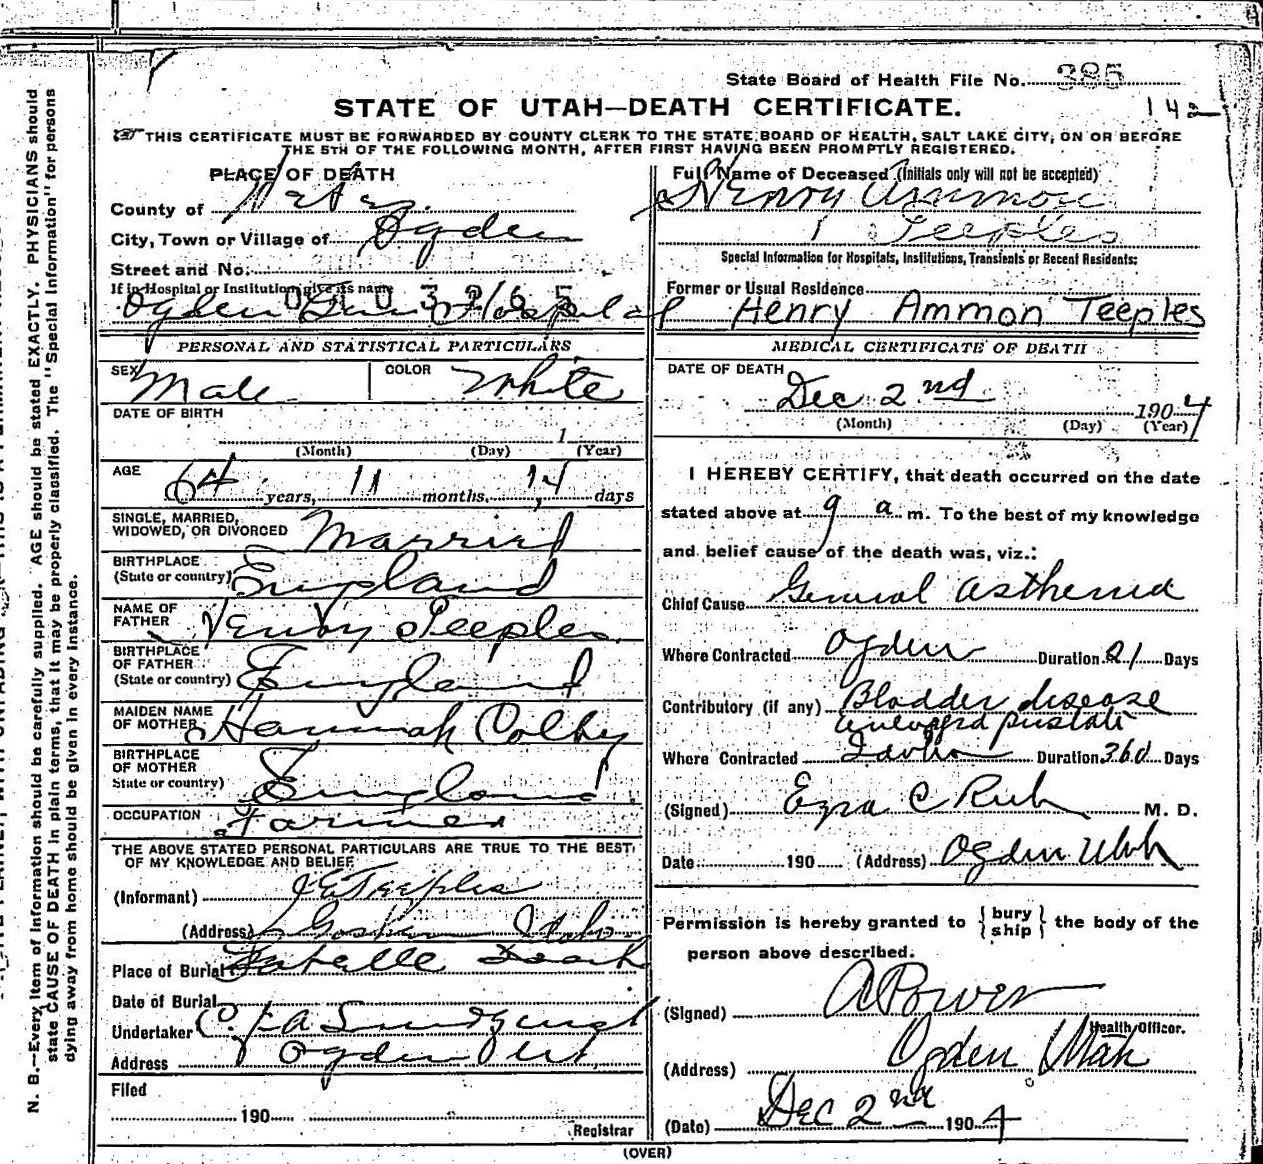 State Board of Health File No. 385
STATE OF UTAH—DEATH CERTIFICATE.
142
THIS CERTIFICATE MUST BE FORWARDED BY COUNTY CLERK TO THE STATE BOARD OF HEALTH, SALT LAKE CITY, ON OR BEFORE
THE 5TH OF THE FOLLOWING MONTH, AFTER FIRST HAVING BEEN PROMPTLY REGISTERED.
PLACE OF DEATH
County of Weber
City, Town or Village of Ogden
Street and No.
If in Hospital or Institution, give its name
Ogden Hospital
Full Name of Deceased (Initials only will not be accepted)
Henry Ammon
Teeples
Special Information for Hospitals, Institutions, Transients or Recent Residents:
Former or Usual Residence
Henry Ammon Teeples
PERSONAL AND STATISTICAL PARTICULARS
SEX Male COLOR White
DATE OF BIRTH
1
(Month) (Day) (Year)
AGE 64 years, 11 months, 14 days
SINGLE, MARRIED,
WIDOWED, OR DIVORCED Married
BIRTHPLACE
(State or country) England
NAME OF
FATHER Henry Teeples
BIRTHPLACE
OF FATHER
(State or country) England
MAIDEN NAME
OF MOTHER Hannah Colby
BIRTHPLACE
OF MOTHER
State or country) England
OCCUPATION Farmer
THE ABOVE STATED PERSONAL PARTICULARS ARE TRUE TO THE BEST
OF MY KNOWLEDGE AND BELIEF
(Informant) Teeples
(Address) Idaho
Place of Burial
Date of Burial
Undertaker
Address Ogden Ut
Filed
190
Registrar
MEDICAL CERTIFICATE OF DEATH
DATE OF DEATH
Dec 2nd 1904
(Month) (Day) (Year)
I HEREBY CERTIFY, that death occurred on the date
stated above at 9 a. m. To the best of my knowledge
and belief cause of the death was, viz.:
Chief Cause General asthenia
Where Contracted Ogden Duration 21 Days
Contributory (if any) Bladder disease
prostate
Where Contracted Duration 360 Days
(Signed) Ezra C Rich M. D.
Date 190 (Address) Ogden Utah
Permission is hereby granted to {bury ship} the body of the
person above described.
(Signed) A Power
Health Officer.
(Address) Ogden Utah
(Date) Dec 2nd 1904
(OVER)
N. B.—Every item of information should be carefully supplied. AGE should be stated EXACTLY. PHYSICIANS should
state CAUSE OF DEATH in plain terms, that it may be properly classified. The "Special Information" for persons
dying away from home should be given in every instance.